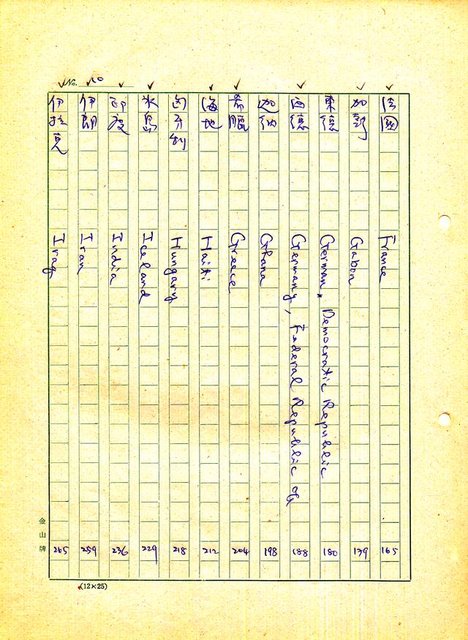 No. 10
法國 France 165
加彭 Gabon 179
東德 German, Democratic Republic 180
西德 Germany, Federal Republic of 188
迦納 Ghana 198
希臘 Greece 204
海地 Haiti 212
匈牙利 Hungary 218
冰島 Iceland 229
印度 India 236
伊朗 Iran 259
伊拉克 Iraq 265
金山牌
(12×25)